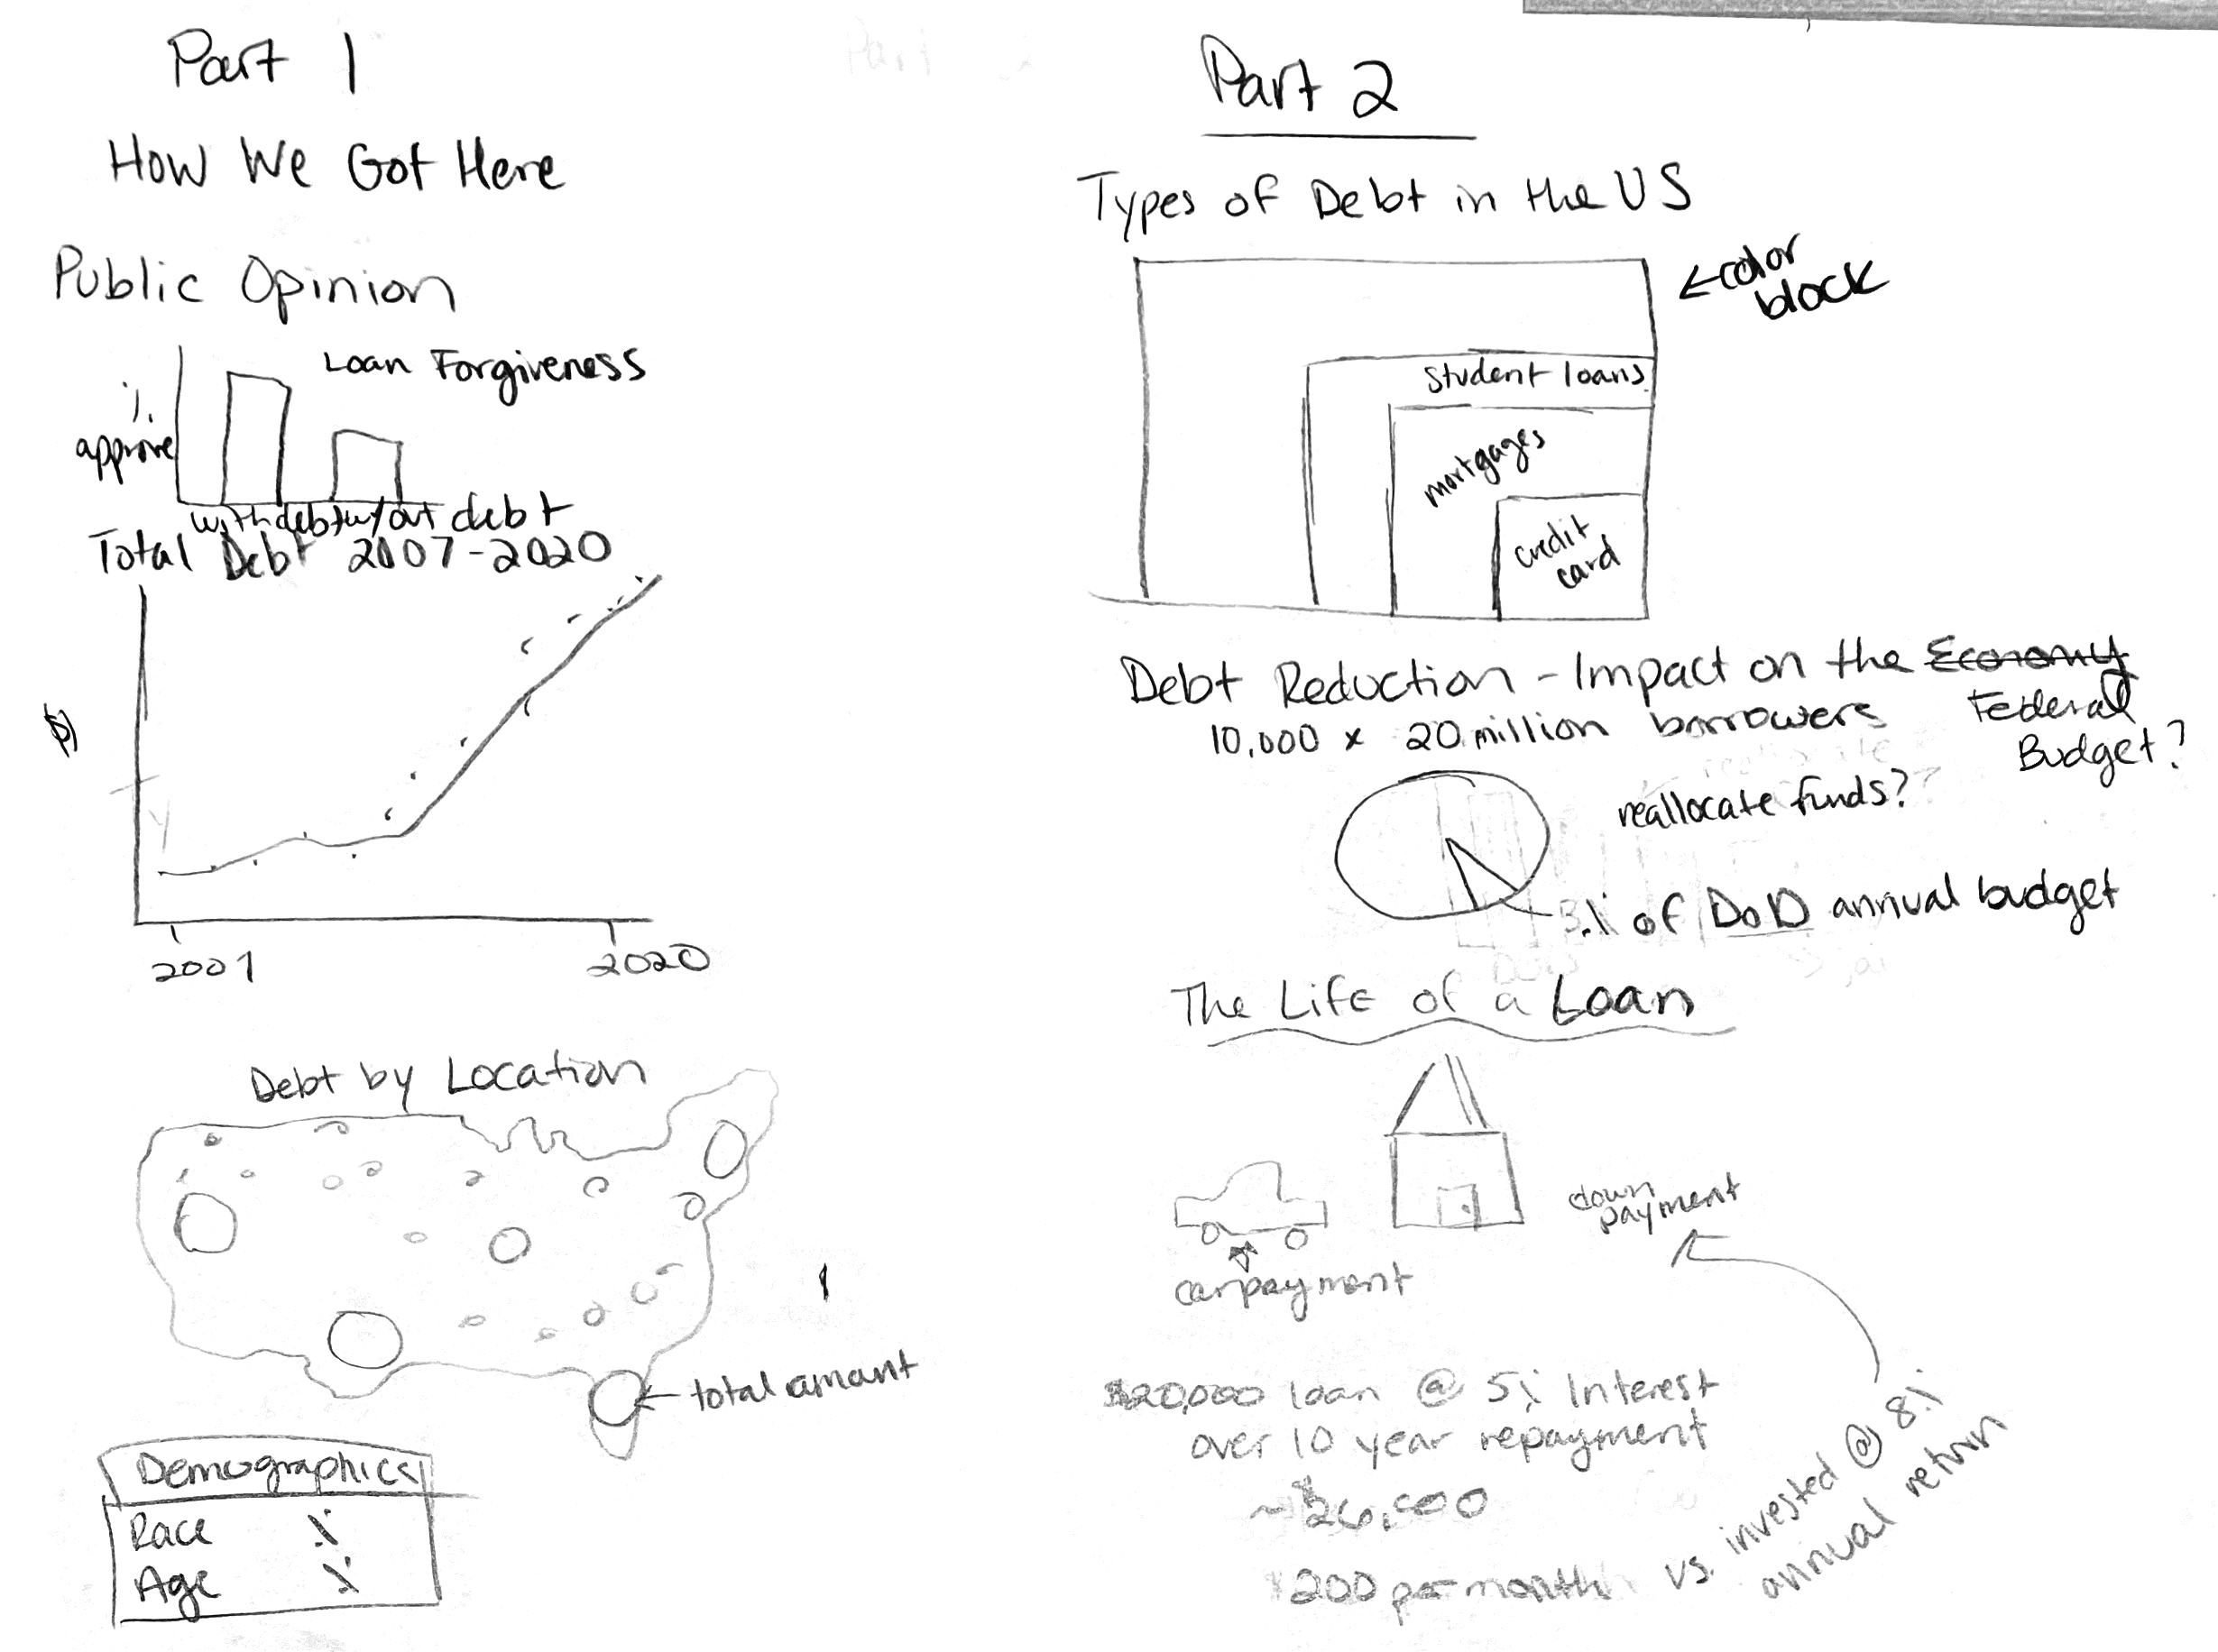 Part 1
How We Got Here
Public Opinion
Loan Forgiveness
%
approve
with debt w/out debt
Total Debt 2007-2020
$
2007
2020
Debt by Location
← total amount
Demographics
Race %
Age %
Part 2
Types of Debt in the US
← color
block
student loans
mortgages
credit
card
Debt Reduction - Impact on the Economy
Federal
Budget?
10,000 x 20 million borrowers
reallocate funds?
% of DoD annual budget
The Life of a Loan
down
payment
car payment
$20,000 loan @ 5% Interest
over 10 year repayment
~ $26,000
$200 per month vs. invested @ 8%
annual return